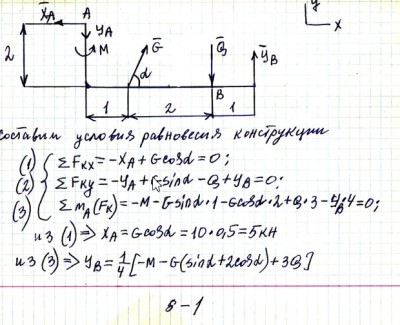 y
X̄A A
x
yA
M Ḡ Q̄ ȳB
2 α
B
1 2 1
составим условия равновесия конструкции
(1) ΣFкх=-XA+Gcosα=0;
(2) ΣFкy=-yA+Gsinα-Q+yB=0;
(3) ΣmA(Fк)=-M-Gsinα·1-Gcosα·2+Q·3-yB·4=0;
из (1) => XA=Gcosα=10·0,5=5кн
из (3) => yB=1/4[-M-G(sinα+2cosα)+3Q]
8-1